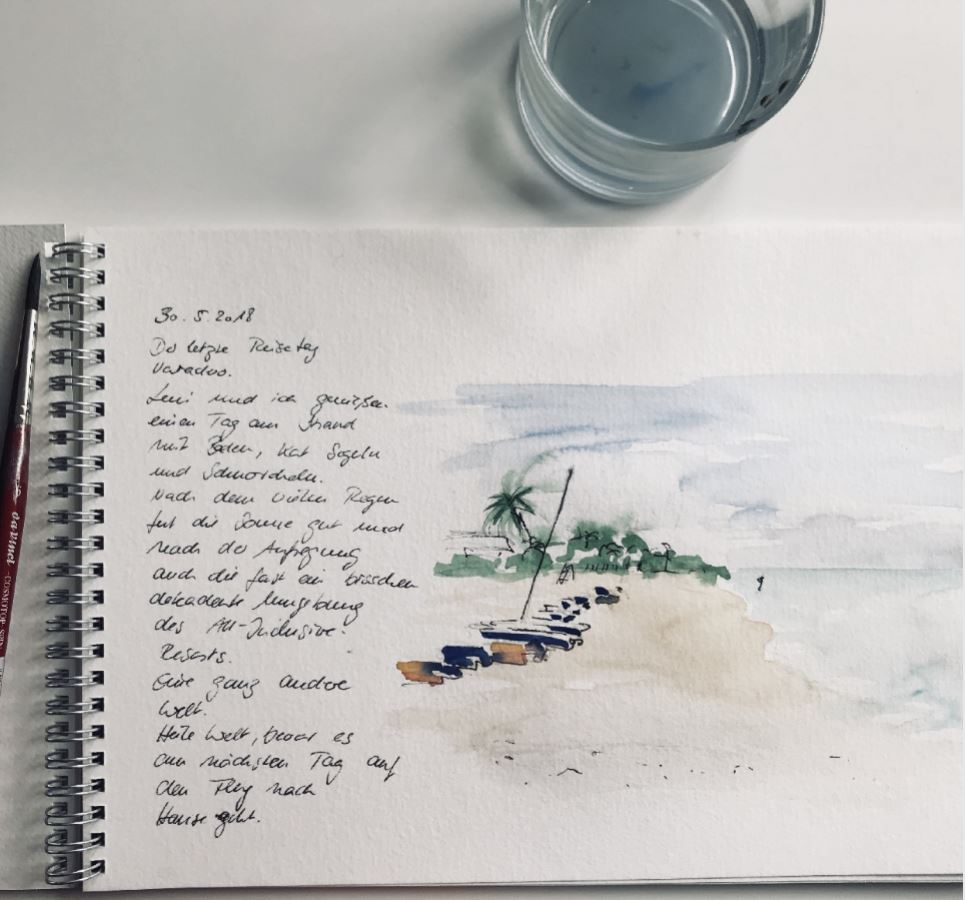 30.5.2018
Der letzte Reisetag
Varadero.
Leni und ich genießen
einen Tag am Strand
mit Baden, Kat Segeln
und Schnorcheln.
Nach dem vielen Regen
tut die Sonne gut und
nach der Aufregung
auch die fast ein bisschen
dekadente Umgebung
des All-Inclusive-
Resorts.
Eine ganz andere
Welt.
Heile Welt, bevor es
am nächsten Tag auf
den Flug nach
Hause geht.
da Vinci
COSMOTOP-SPIN